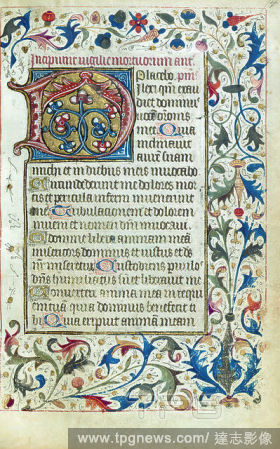 Incipiunt vigilie mortuorum ant.
Placebo. ps
Dilexi qm exau
diet dominus
vocem orationis
mee Quia
inclinavit
aurem suam
michi et in diebus meis invocabo
Circumdederunt me dolores mor
tis et pericula inferni invenerunt
me Tribulationem et dolorem
inveni et nomen domini invocavi
O domine libera animam mea
misericors dominus et iustus et de
us nr miseretur Custodiens parvulos
dns humiliatus sum et liberavit me
Convertere anima mea in requi
em tuam quia dominus benefecit ti
bi Quia eripuit animam meam
www.tpgnews.com/ 達志影像